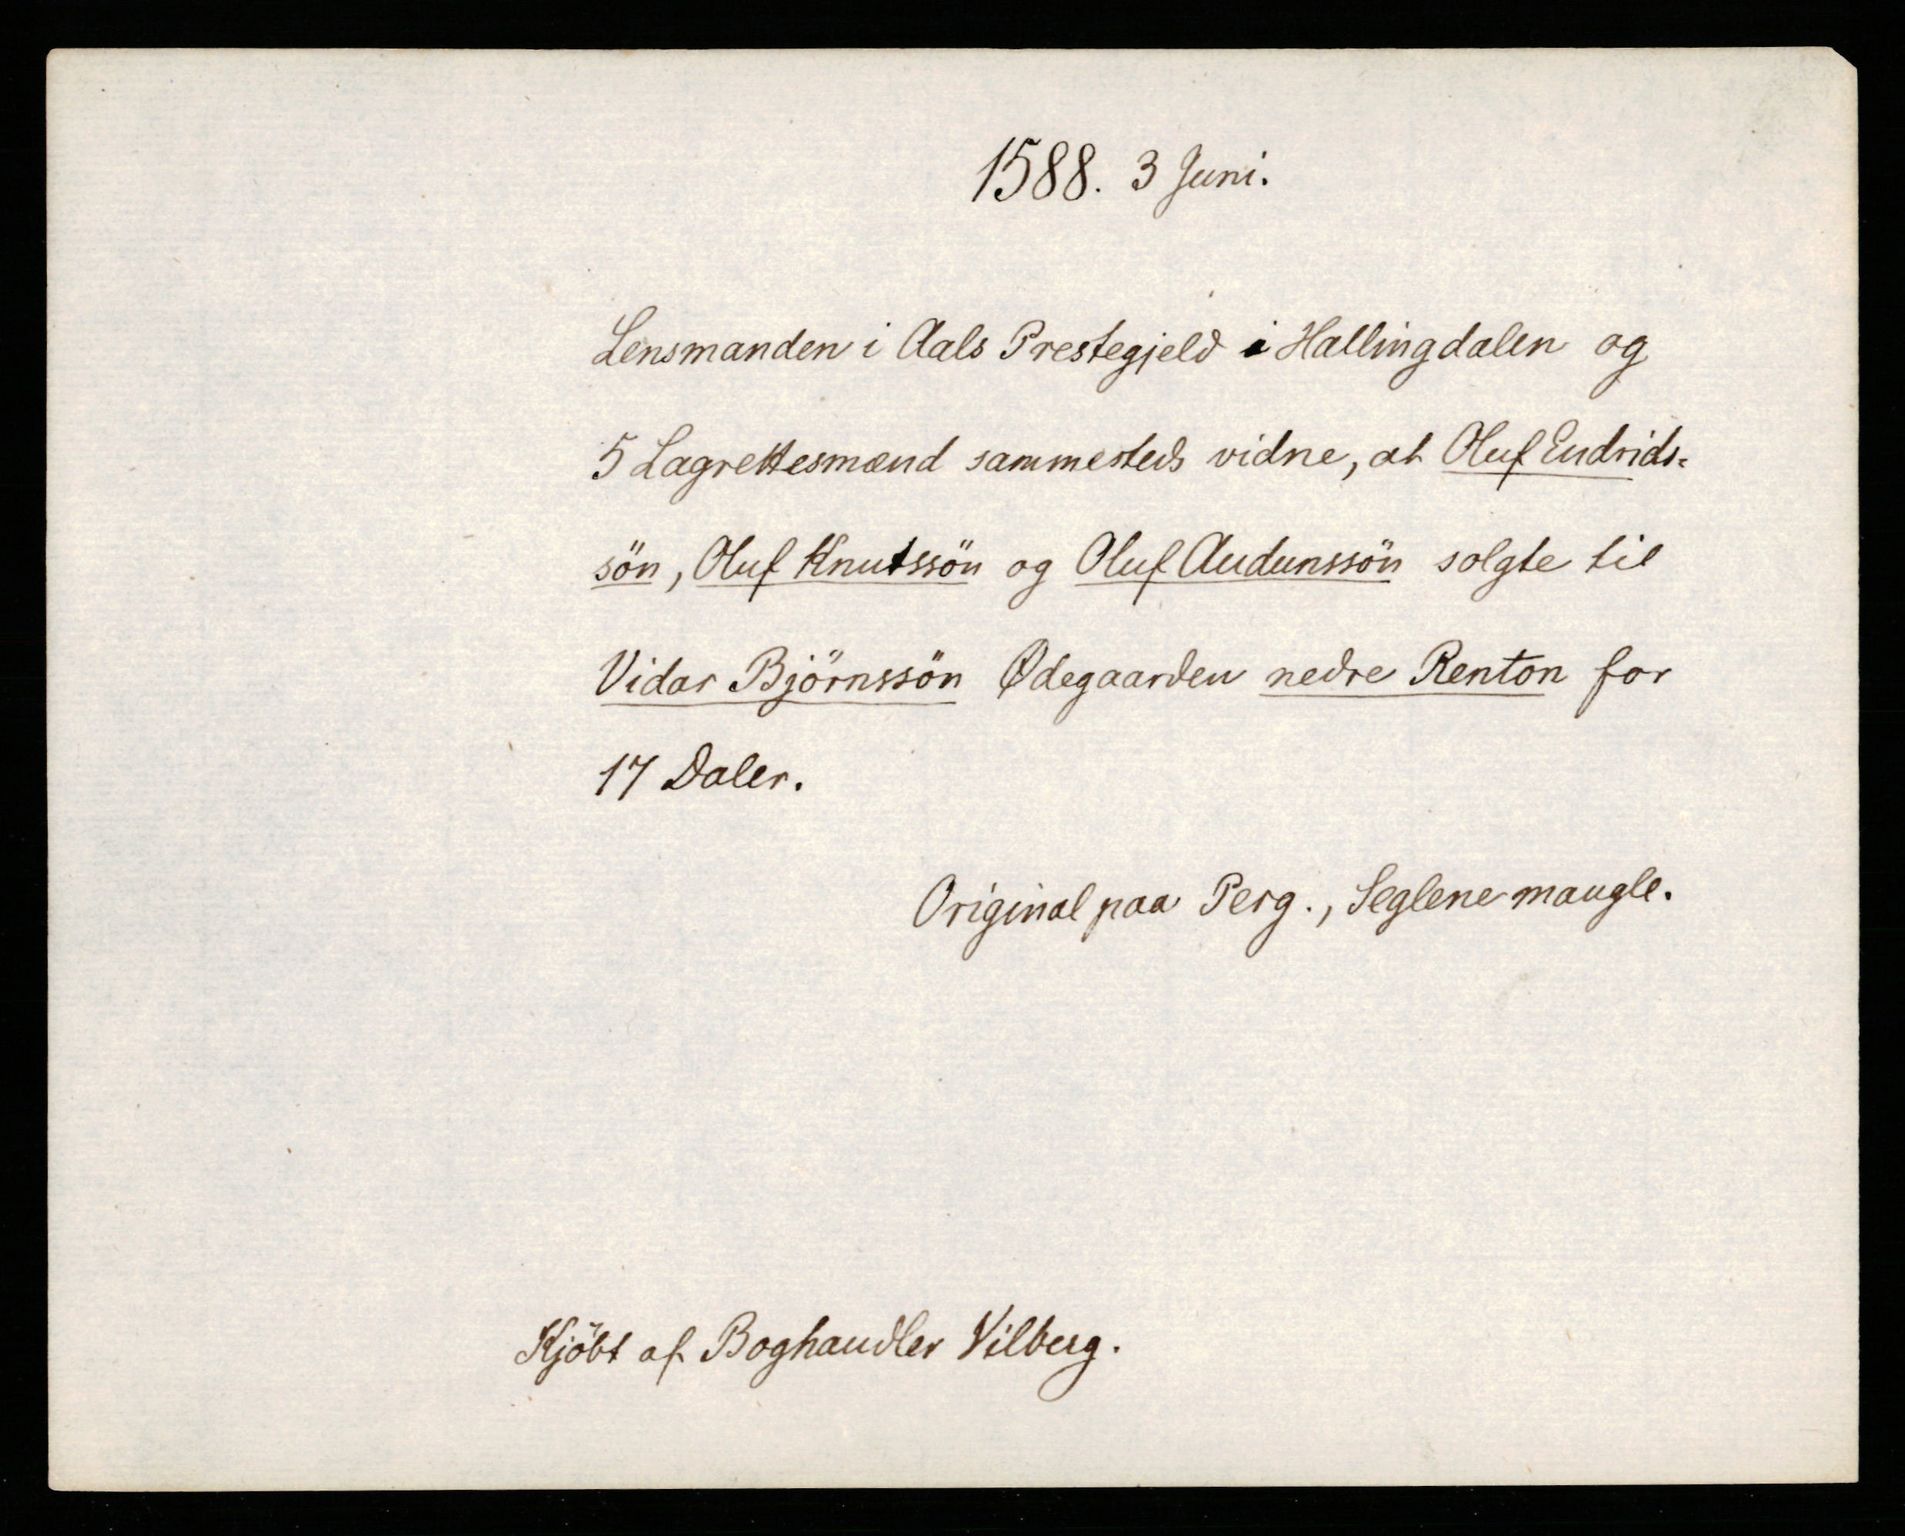 1588. 3 Juni.
Lensmanden i Aals Prestegjeld i Hallingdalen og
5 Lagrettesmænd sammesteds vidne, at Oluf Endrids-
sön, Oluf Knutssön og Oluf Audunssön solgte til
Vidar Björnssön Ødegaarden nedre Renton for
17 Daler.
Original paa Perg., Seglene mangle.
Kjöbt af Boghandler Vilberg.